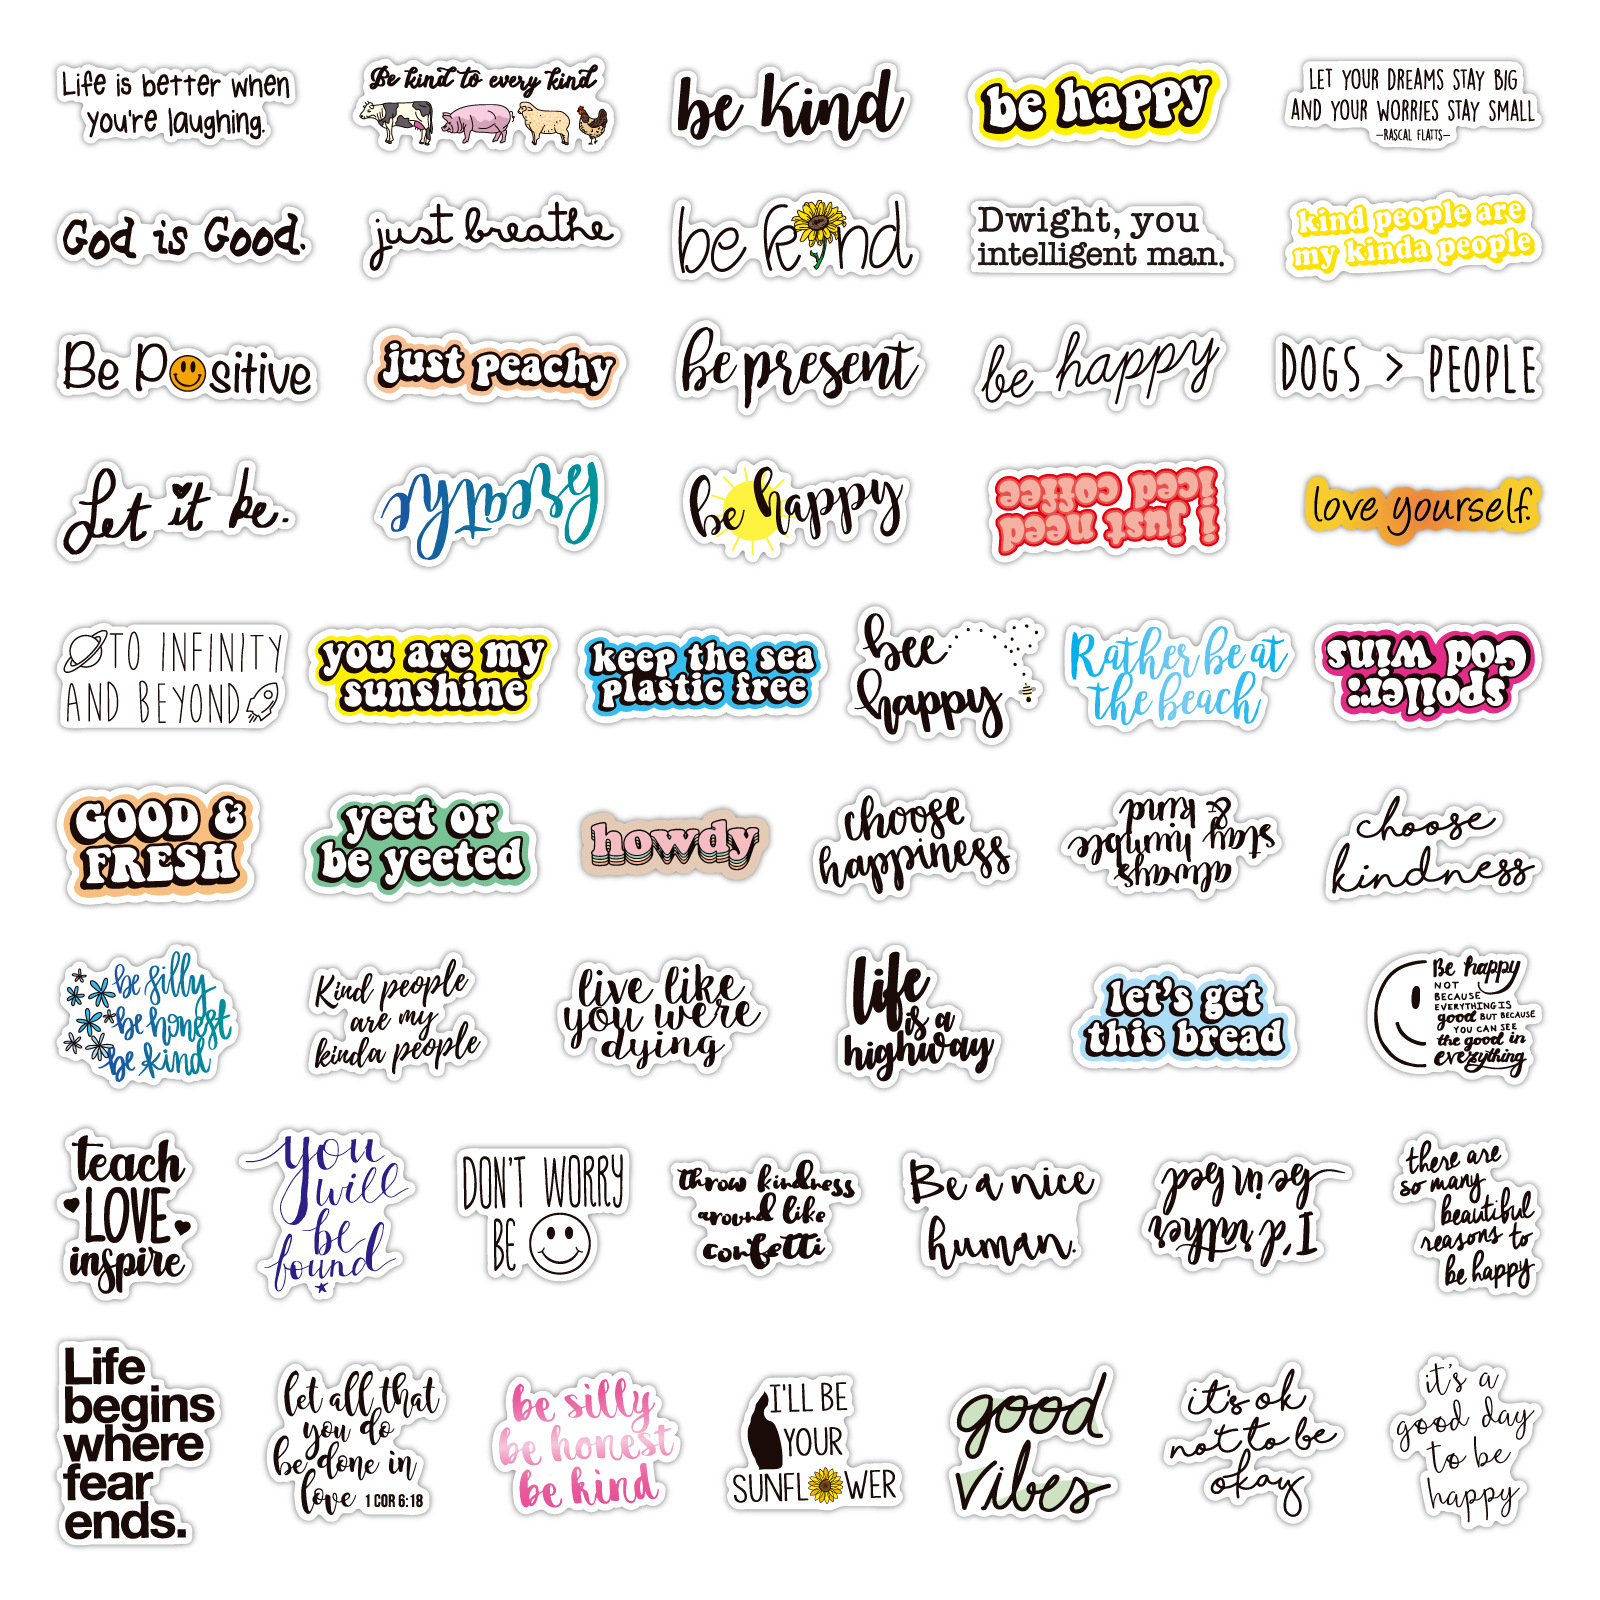 Life is better when
you're laughing.
Be kind to every kind
be kind
be happy
LET YOUR DREAMS STAY BIG
AND YOUR WORRIES STAY SMALL
-RASCAL FLATTS-
God is Good.
just breathe
be kind
Dwight, you
intelligent man.
kind people are
my kinda people
Be Positive
just peachy
be present
be happy
DOGS > PEOPLE
Let it be.
breathe
be happy
i just need
iced coffee
love yourself.
TO INFINITY
AND BEYOND
you are my
sunshine
keep the sea
plastic free
bee
happy
Rather be at
the beach
spoiler:
God wins
GOOD &
FRESH
yeet or
be yeeted
howdy
choose
happiness
always
stay humble
& kind
choose
kindness
be silly
be honest
be kind
Kind people
are my
kinda people
live like
you were
dying
life
is a
highway
let's get
this bread
Be happy
NOT
BECAUSE
EVERYTHING IS
good BUT BECAUSE
YOU CAN SEE
the good in
everything
teach
LOVE
inspire
you
will
be
found
DON'T WORRY
BE
throw kindness
around like
confetti
Be a nice
human.
I'd rather
be in bed
there are
so many
beautiful
reasons to
be happy
Life
begins
where
fear
ends.
let all that
you do
be done in
love 1 COR 6:18
be silly
be honest
be kind
I'LL BE
YOUR
SUNFLOWER
good
vibes
it's ok
not to be
okay
it's a
good day
to be
happy